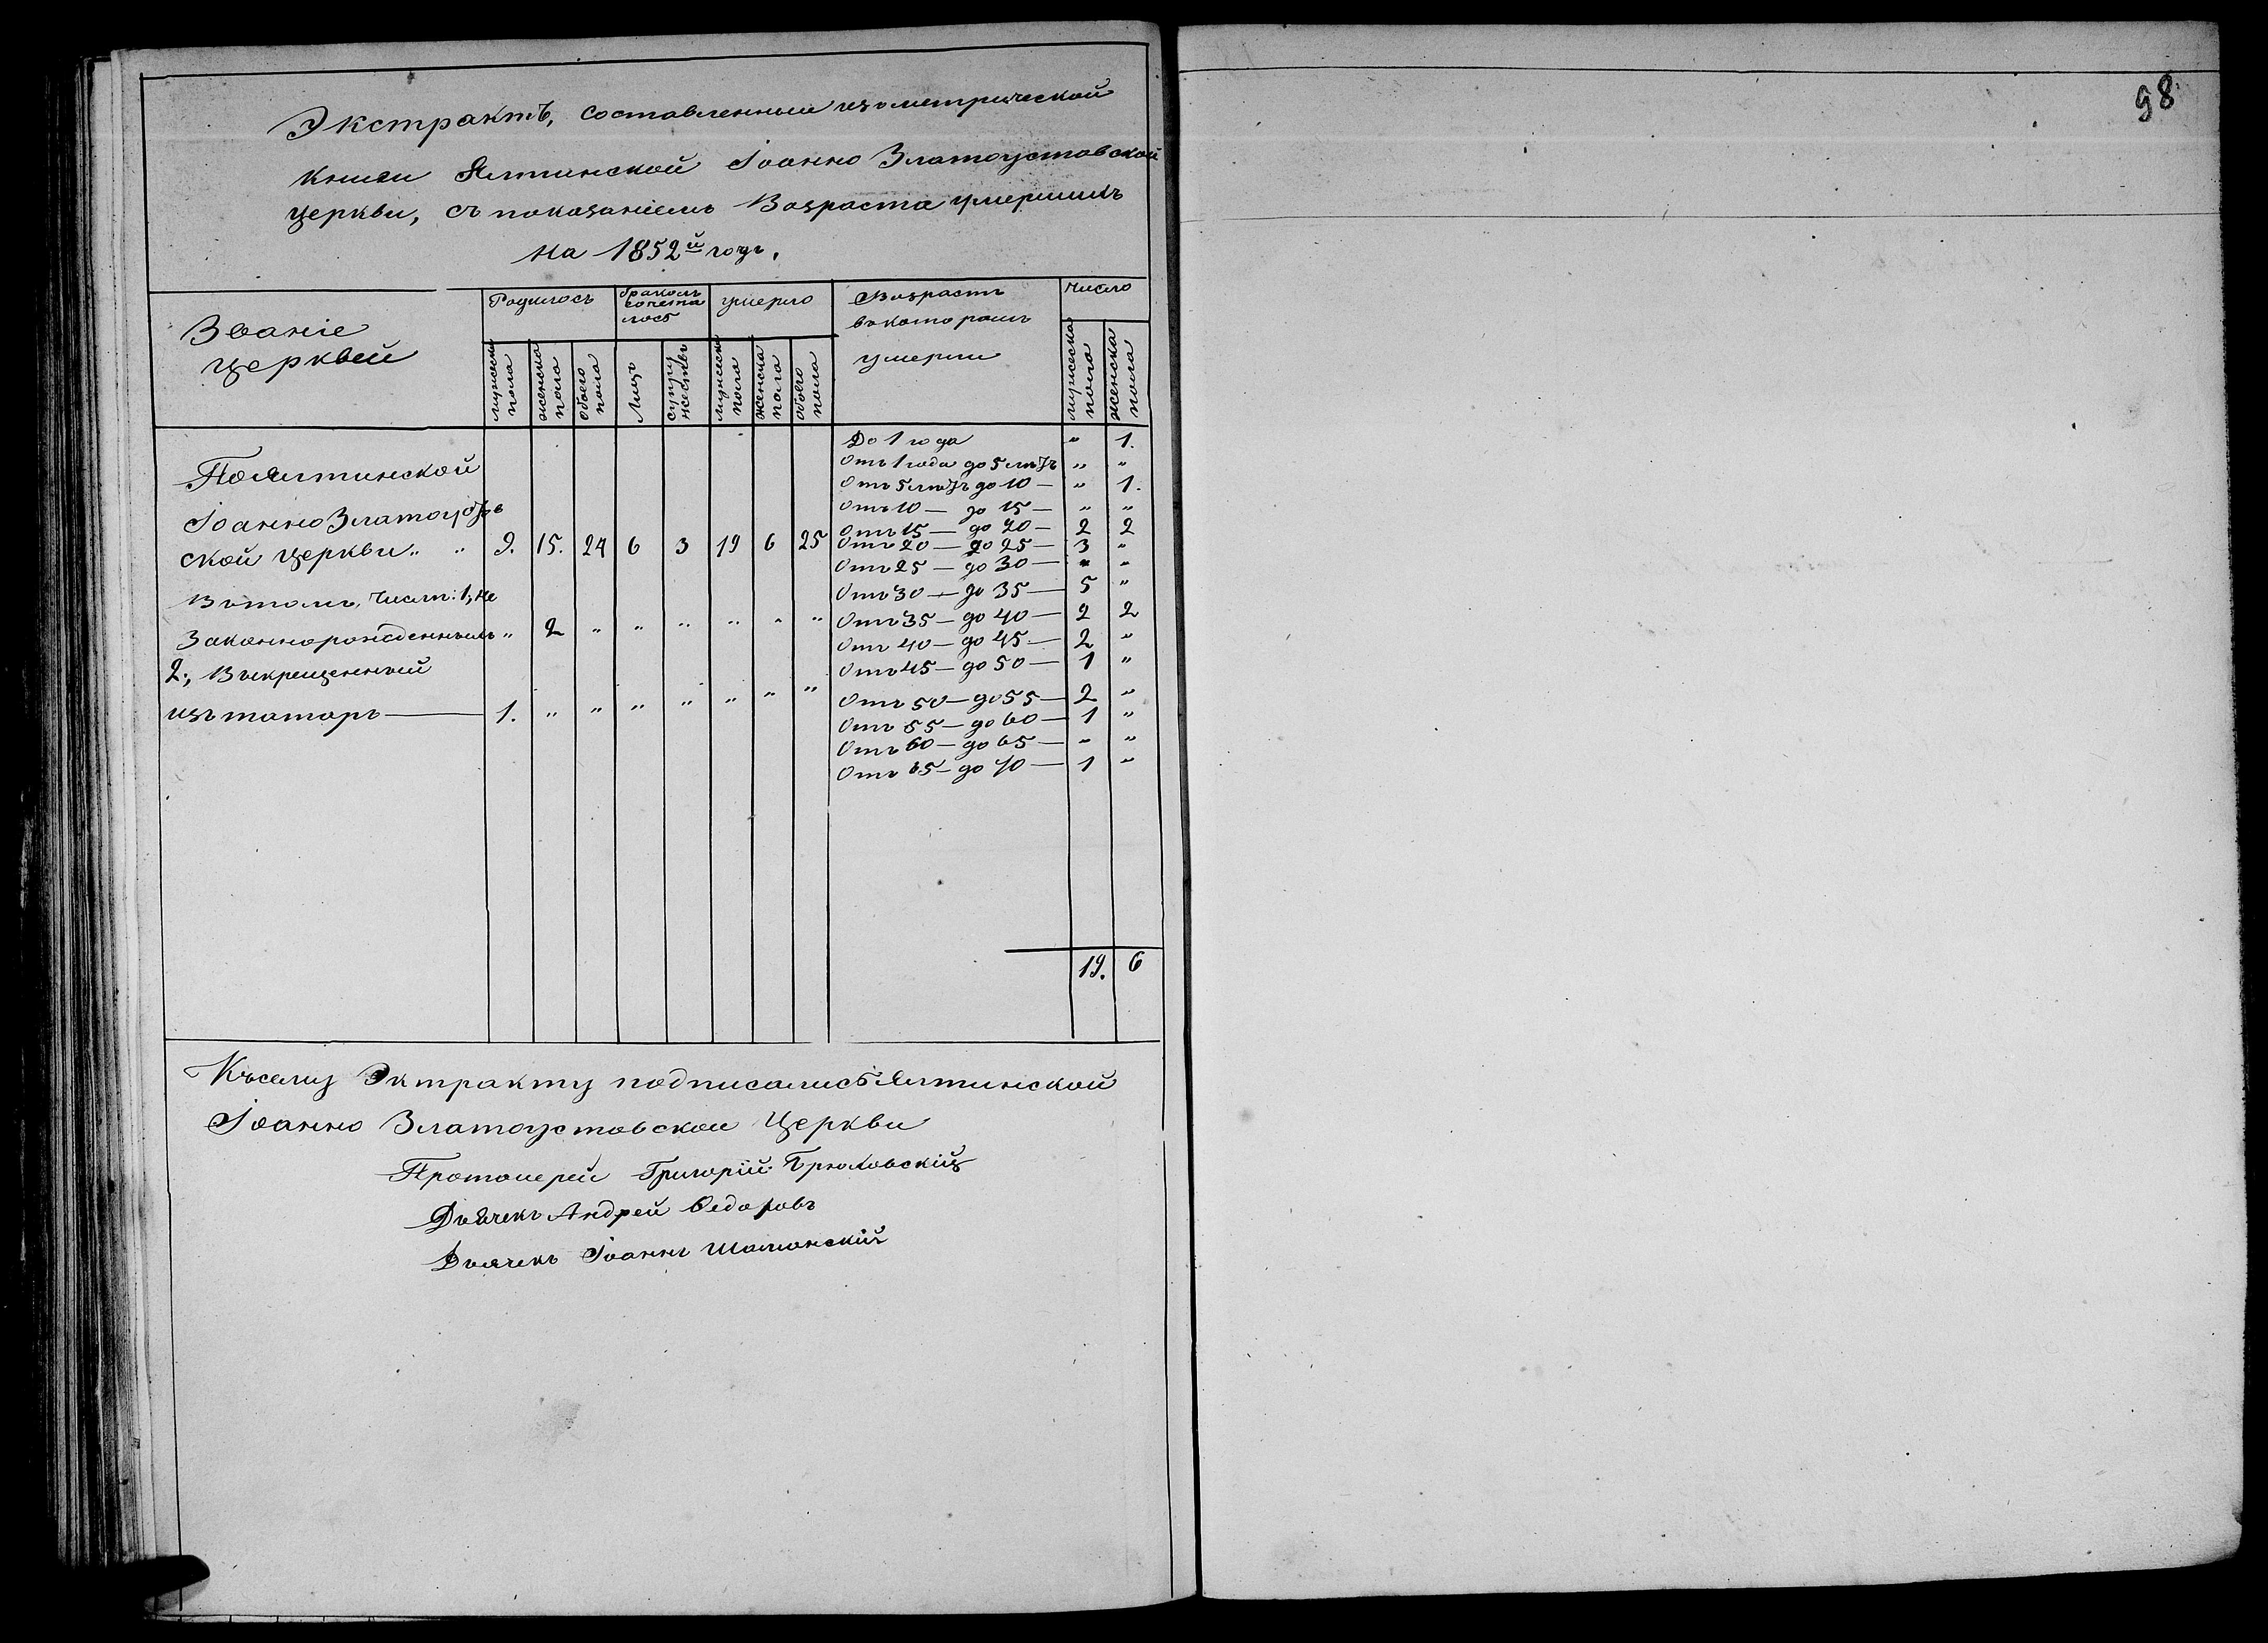 98
Экстрактъ, составленный изъ метрической
книги Ялтинской Іоанно Златоустовской
церкви, съ показаніемъ Возраста умершихъ
на 1852й годъ.
Званіе церквей
Родилось
бракомъ сочеталось
умерло
Возрастъ въ которомъ умерли
число
мужеска пола
женска пола
обоего пола
Лицъ
супружествъ
мужеска пола
женска пола
обоего пола
мужеска пола
женска пола
По Ялтинской
Іоанно Златоустов
ской церкви „ „ 9. 15. 24 6 3 19 6 25
В томъ, числѣ: 1, не
Законнорожденныхъ „ 2 „ „ „ „ „ „
2., Выкрещенный
изъ татаръ — 1. „ „ „ „ „ „ „
До 1 года „ 1.
Отъ 1 года до 5 лѣтъ „ „
Отъ 5 лѣтъ до 10 — „ 1.
Отъ 10 — до 15 — „ „
Отъ 15 — до 20 — 2 2
Отъ 20 — до 25 — 3 „
Отъ 25 — до 30 — „ „
Отъ 30 — до 35 — 5 „
Отъ 35 — до 40 — 2 2
Отъ 40 — до 45 — 2 „
Отъ 45 — до 50 — 1 „
Отъ 50 — до 55 — 2 „
Отъ 55 — до 60 — 1 „
Отъ 60 — до 65 — „ „
Отъ 65 — до 70 — 1 „
19. 6
Къ сему Эктракту подписались Ялтинской
Іоанно Златоустовской Церкви
Протоиерей Григорій Брюховскій
Дьячекъ Андрей Ѳедоровъ
Дьячекъ Іоаннъ